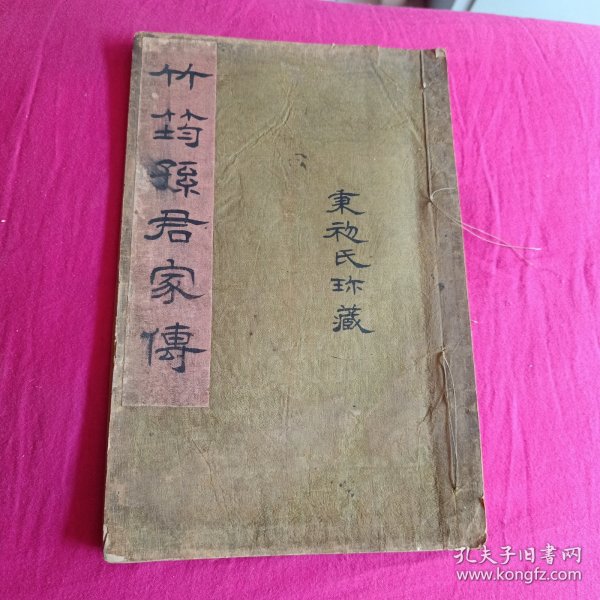 竹筠孫君家傳
秉初氏珎藏
孔夫子旧書网
www.kongfz.com